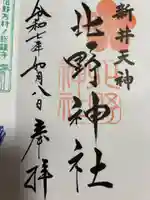 新井天神
北野神社
令和七年月八日奉拝